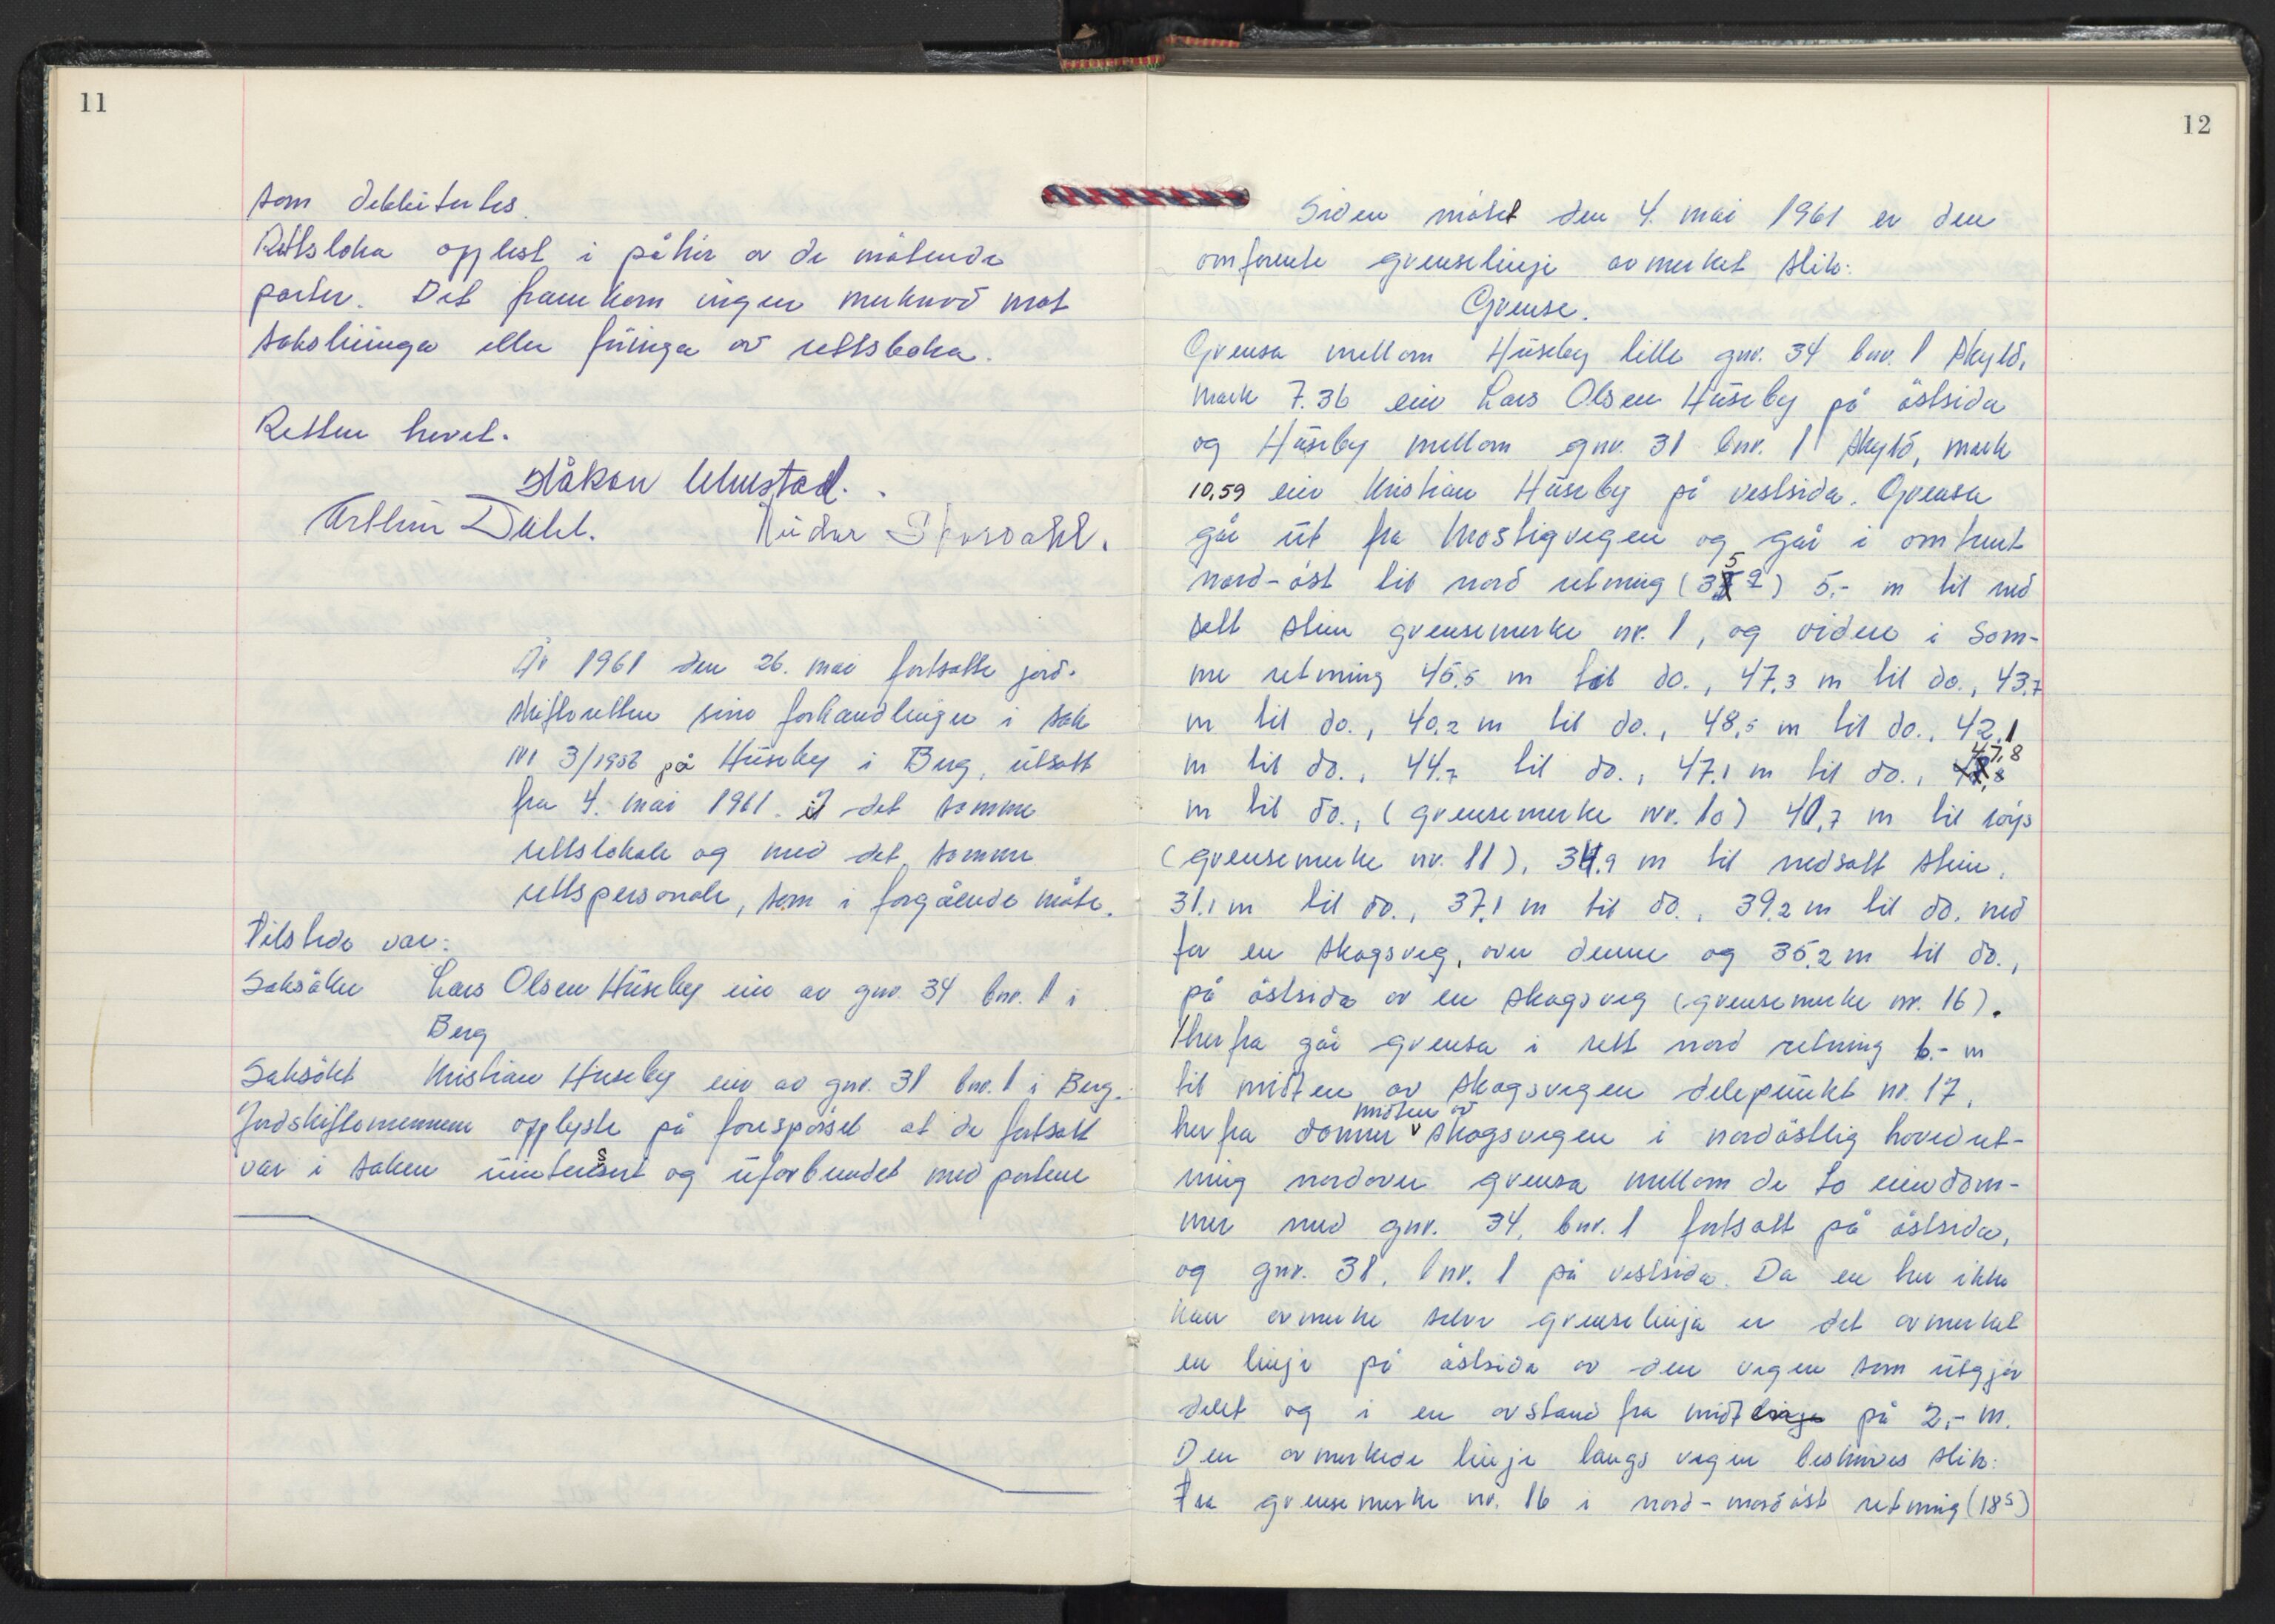 11
som dekkitertes.
Rettsboka opplest i påhør av de møtende
parter. Det framkom ingen merknad mot
sakslininga eller føringa av rettsboka.
Retten hevet.
Håkon Ulmstad.
Arthur Dahl.
År 1961 den 26. mai fortsatte jord-
skifteretten sine forhandlinger i sak
nr 3/1956 på Huseby i Berg, utsatt
fra 4. mai 1961 i det samme
rettslokale og med det samme
rettspersonale, som i forgående møte.
Tilstede var:
Saksøker Lars Olsen Huseby eier av gnr. 34 bnr. 1 i
Berg
Saksøkt Kristian Huseby eier av gnr. 31 bnr. 1 i Berg.
Jordskiftemennene opplyste på forespørsel at de fortsatt
var i saken uinteressert og uforbundet med partene
12
Siden møtet den 4. mai 1961 er den
omforente grenselinje avmerket slik:
Grense.
Grensa mellom Huseby lille gnr. 34 bnr. 1 skyld,
mark 7.36 eier Lars Olsen Huseby på østsida
og Huseby mellom gnr. 31 bnr. 1 skyld, mark
10,59 eier Kristian Huseby på vestsida. Grensa
går ut fra Krostigvegen og går i omtrent
nord-øst til nord retning (35 g) 5.- m til ned
satt stein grensemerke nr. 1, og videre i sam-
me retning 45,5 m til do., 47,3 m til do., 43,7
m til do., 40,2 m til do., 48,5 m til do., 42,1
m til do., 44,7 til do., 47,1 m til do., 47,8
m til do., (grensemerke nr. 10) 40,7 m til røys
(grensemerke nr. 11), 34,9 m til nedsatt stein,
31,1 m til do., 37,1 m til do., 39,2 m til do. ned
for en skogsveg, over denne og 35,2 m til do.,
på østsida av en skogsveg (grensemerke nr. 16).
Herfra går grensa i rett nord retning 6.- m
til midten av skogsvegen delepunkt nr. 17,
herfra danner midten av skogsvegen i nordøstlig hovedret-
ning nordover grensa mellom de to eiendom-
mer med gnr. 34, bnr. 1 fortsatt på østsida,
og gnr. 31, bnr. 1 på vestsida. Da en her ikke
kan avmerke selve grenselinja er det avmerket
en linje på østsida av den vegen som utgjør
delet og i en avstand fra midt linja på 2,- m.
Den avmerkede linje langs vegen beskrives slik:
Fra grensemerke nr. 16 i nord-nordøst retning (18 g)